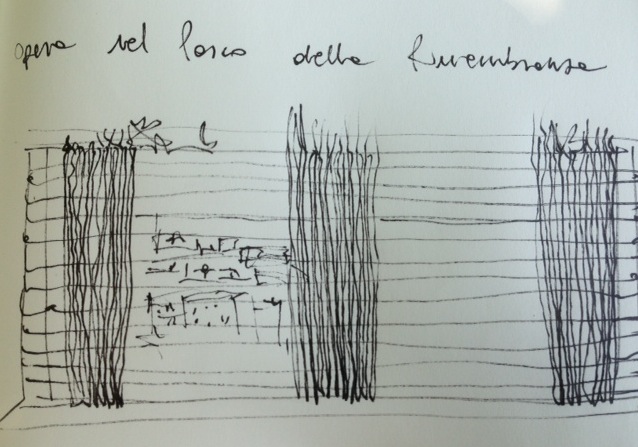 opera nel Parco della Rimembranza